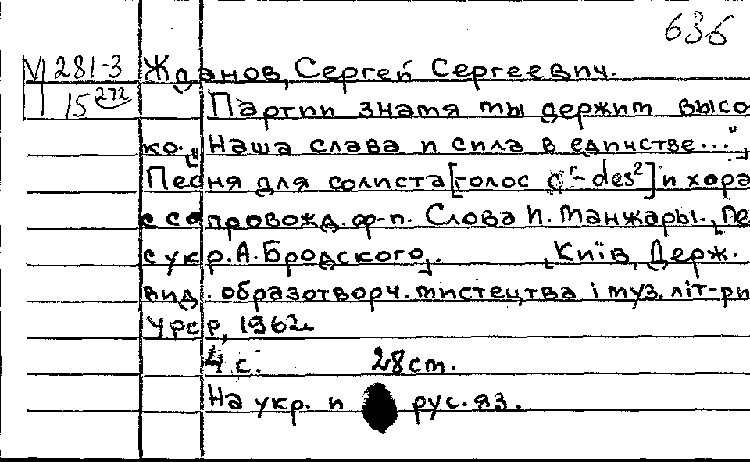 636
М 281-3 Жданов, Сергей Сергеевич.
15 272 Партии знамя мы держим высо
ко. „Наша слава и сила в единстве..."
Песня для солиста [голос c'-des²] и хора
с сопровожд. ф-п. Слова И. Манжары. [Пе
с укр. А. Бродского]. [Київ, Держ.
вид. образотворч. мистецтва і муз. літ-ри
УРСР, 1962
4 с. 28 см.
На укр. и рус. яз.